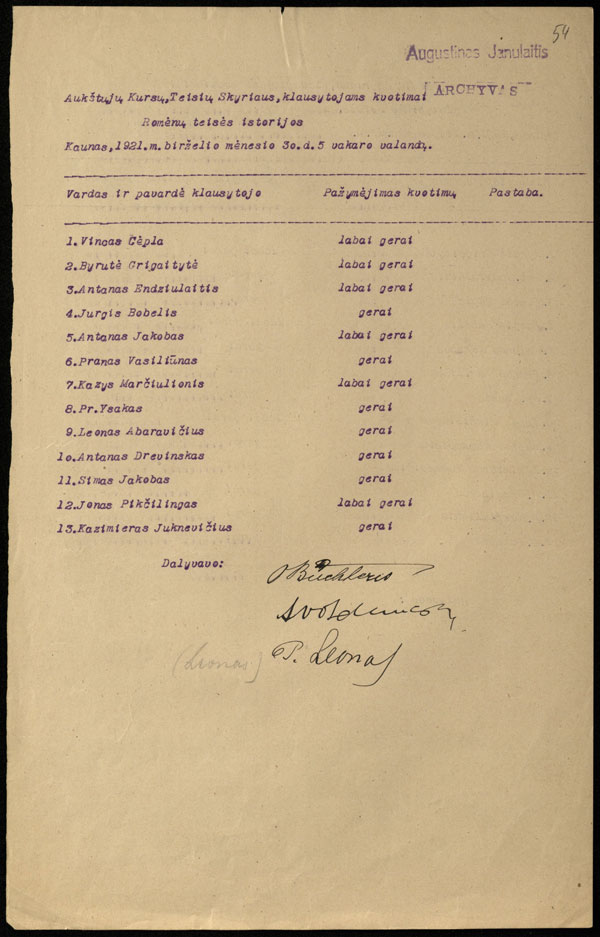 54
Augustinas Janulaitis
ARCHYVAS
Aukštųjų Kursų,Teisių Skyriaus,klausytojams kvotimai
Romėnų teisės istorijos
Kaunas,1921.m.birželio mėnesio 30.d.5 vakaro valandų.
Vardas ir pavardė klausytojo Pažymėjimas kvotimų Pastaba.
1.Vincas Čėpla labai gerai
2.Byrutė Grigaitytė labai gerai
3.Antanas Endziulaitis labai gerai
4.Jurgis Bobelis gerai
5.Antanas Jakobas labai gerai
6.Pranas Vasiliūnas gerai
7.Kazys Marčiulionis labai gerai
8.Pr.Ysakas gerai
9.Leonas Abaravičius gerai
10.Antanas Drevinskas gerai
11.Simas Jakobas gerai
12.Jonas Pikčilingas labai gerai
13.Kazimieras Juknevičius gerai
Dalyvavo:
(Leonas) P. Leonas